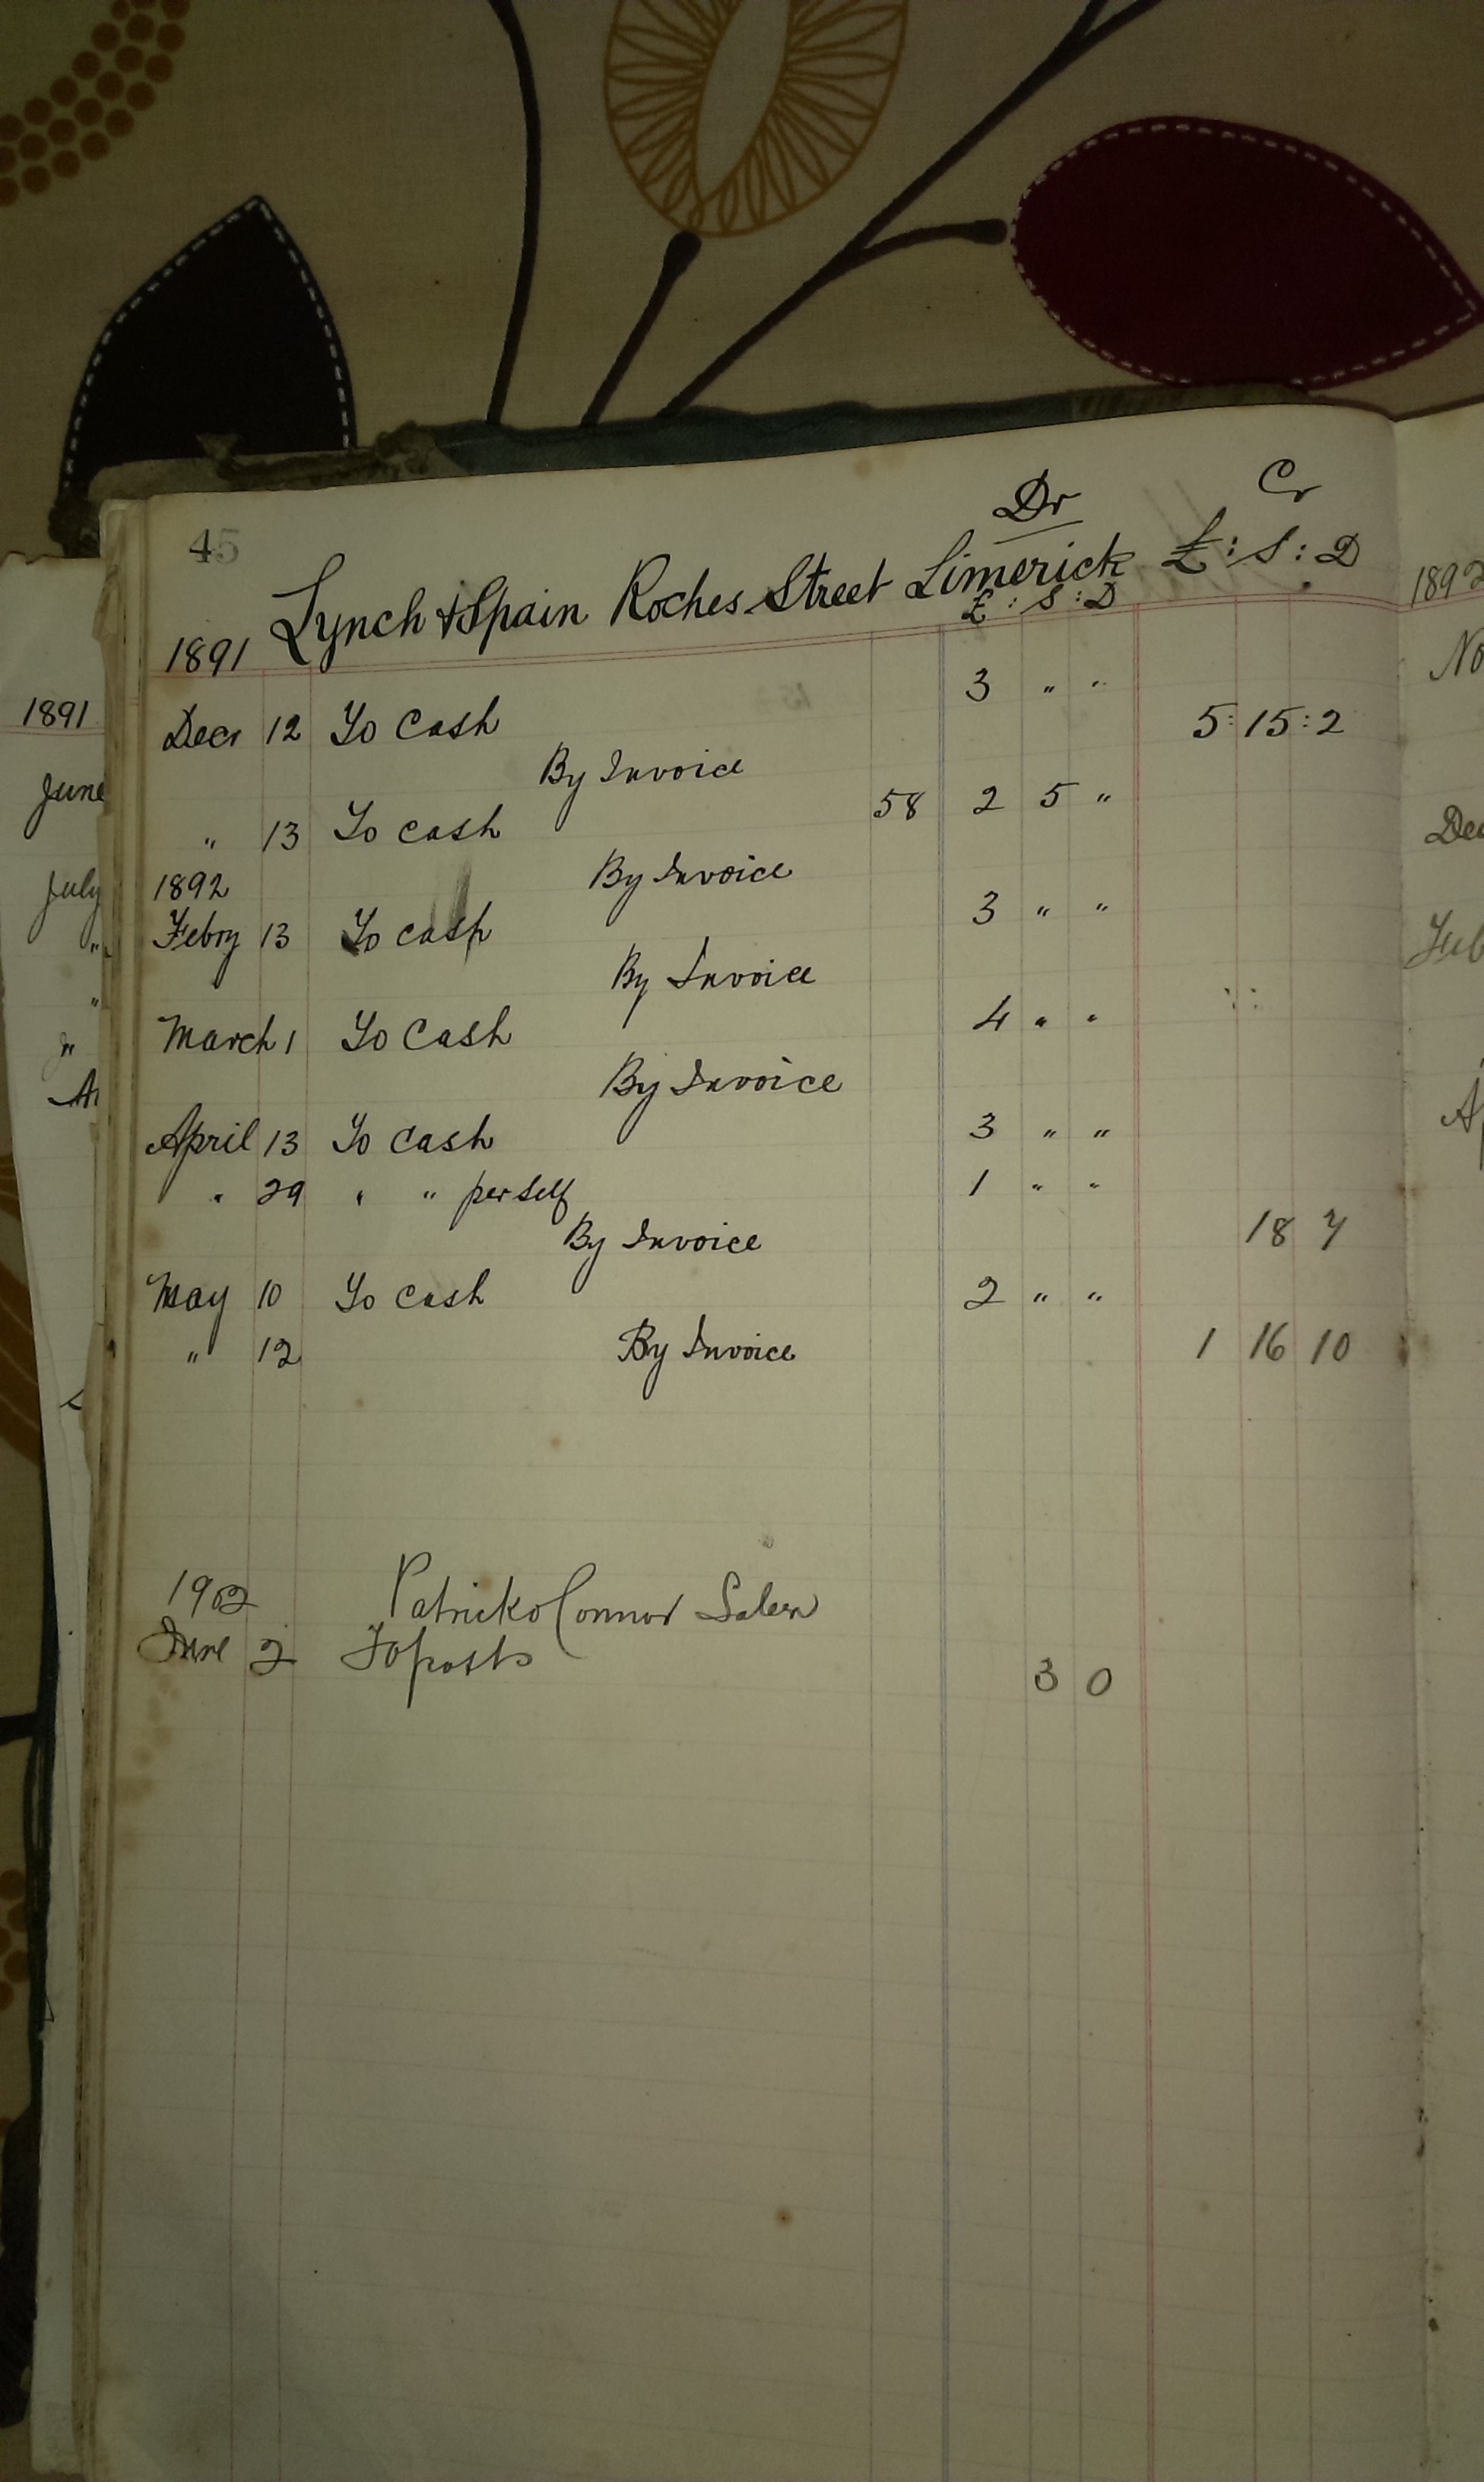 Dr Cr
45
Lynch & Spain Roches Street Limerick £ : S : D
£ : S : D
1891
3 " "
Decr 12 To Cash 5 : 15 : 2
By Invoice
" 13 To Cash 58 2 5 "
By Invoice
1892
Febry 13 To Cash 3 " "
By Invoice
March 1 To Cash 4 " "
By Invoice
April 13 To Cash 3 " "
" 29 " " per self 1 " "
By Invoice 18 7
May 10 To Cash 2 " "
" 12 By Invoice 1 16 10
1902 Patrick o Connor
June 2 To posts 3 0
1891
June
July
"
"
"
1892